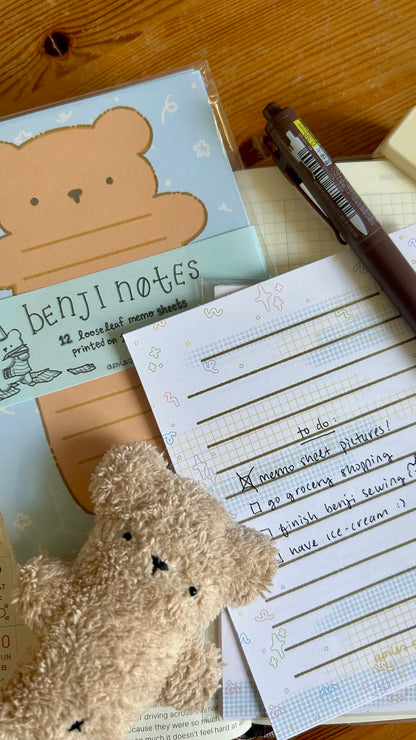 benji notes
12 looseleaf memo sheets
printed on
to do:
memo sheet pictures!
go grocery shopping
finish benji sewing
have ice-cream :)
driving across
because they were so much
so much it doesn't feel hard at
SUN